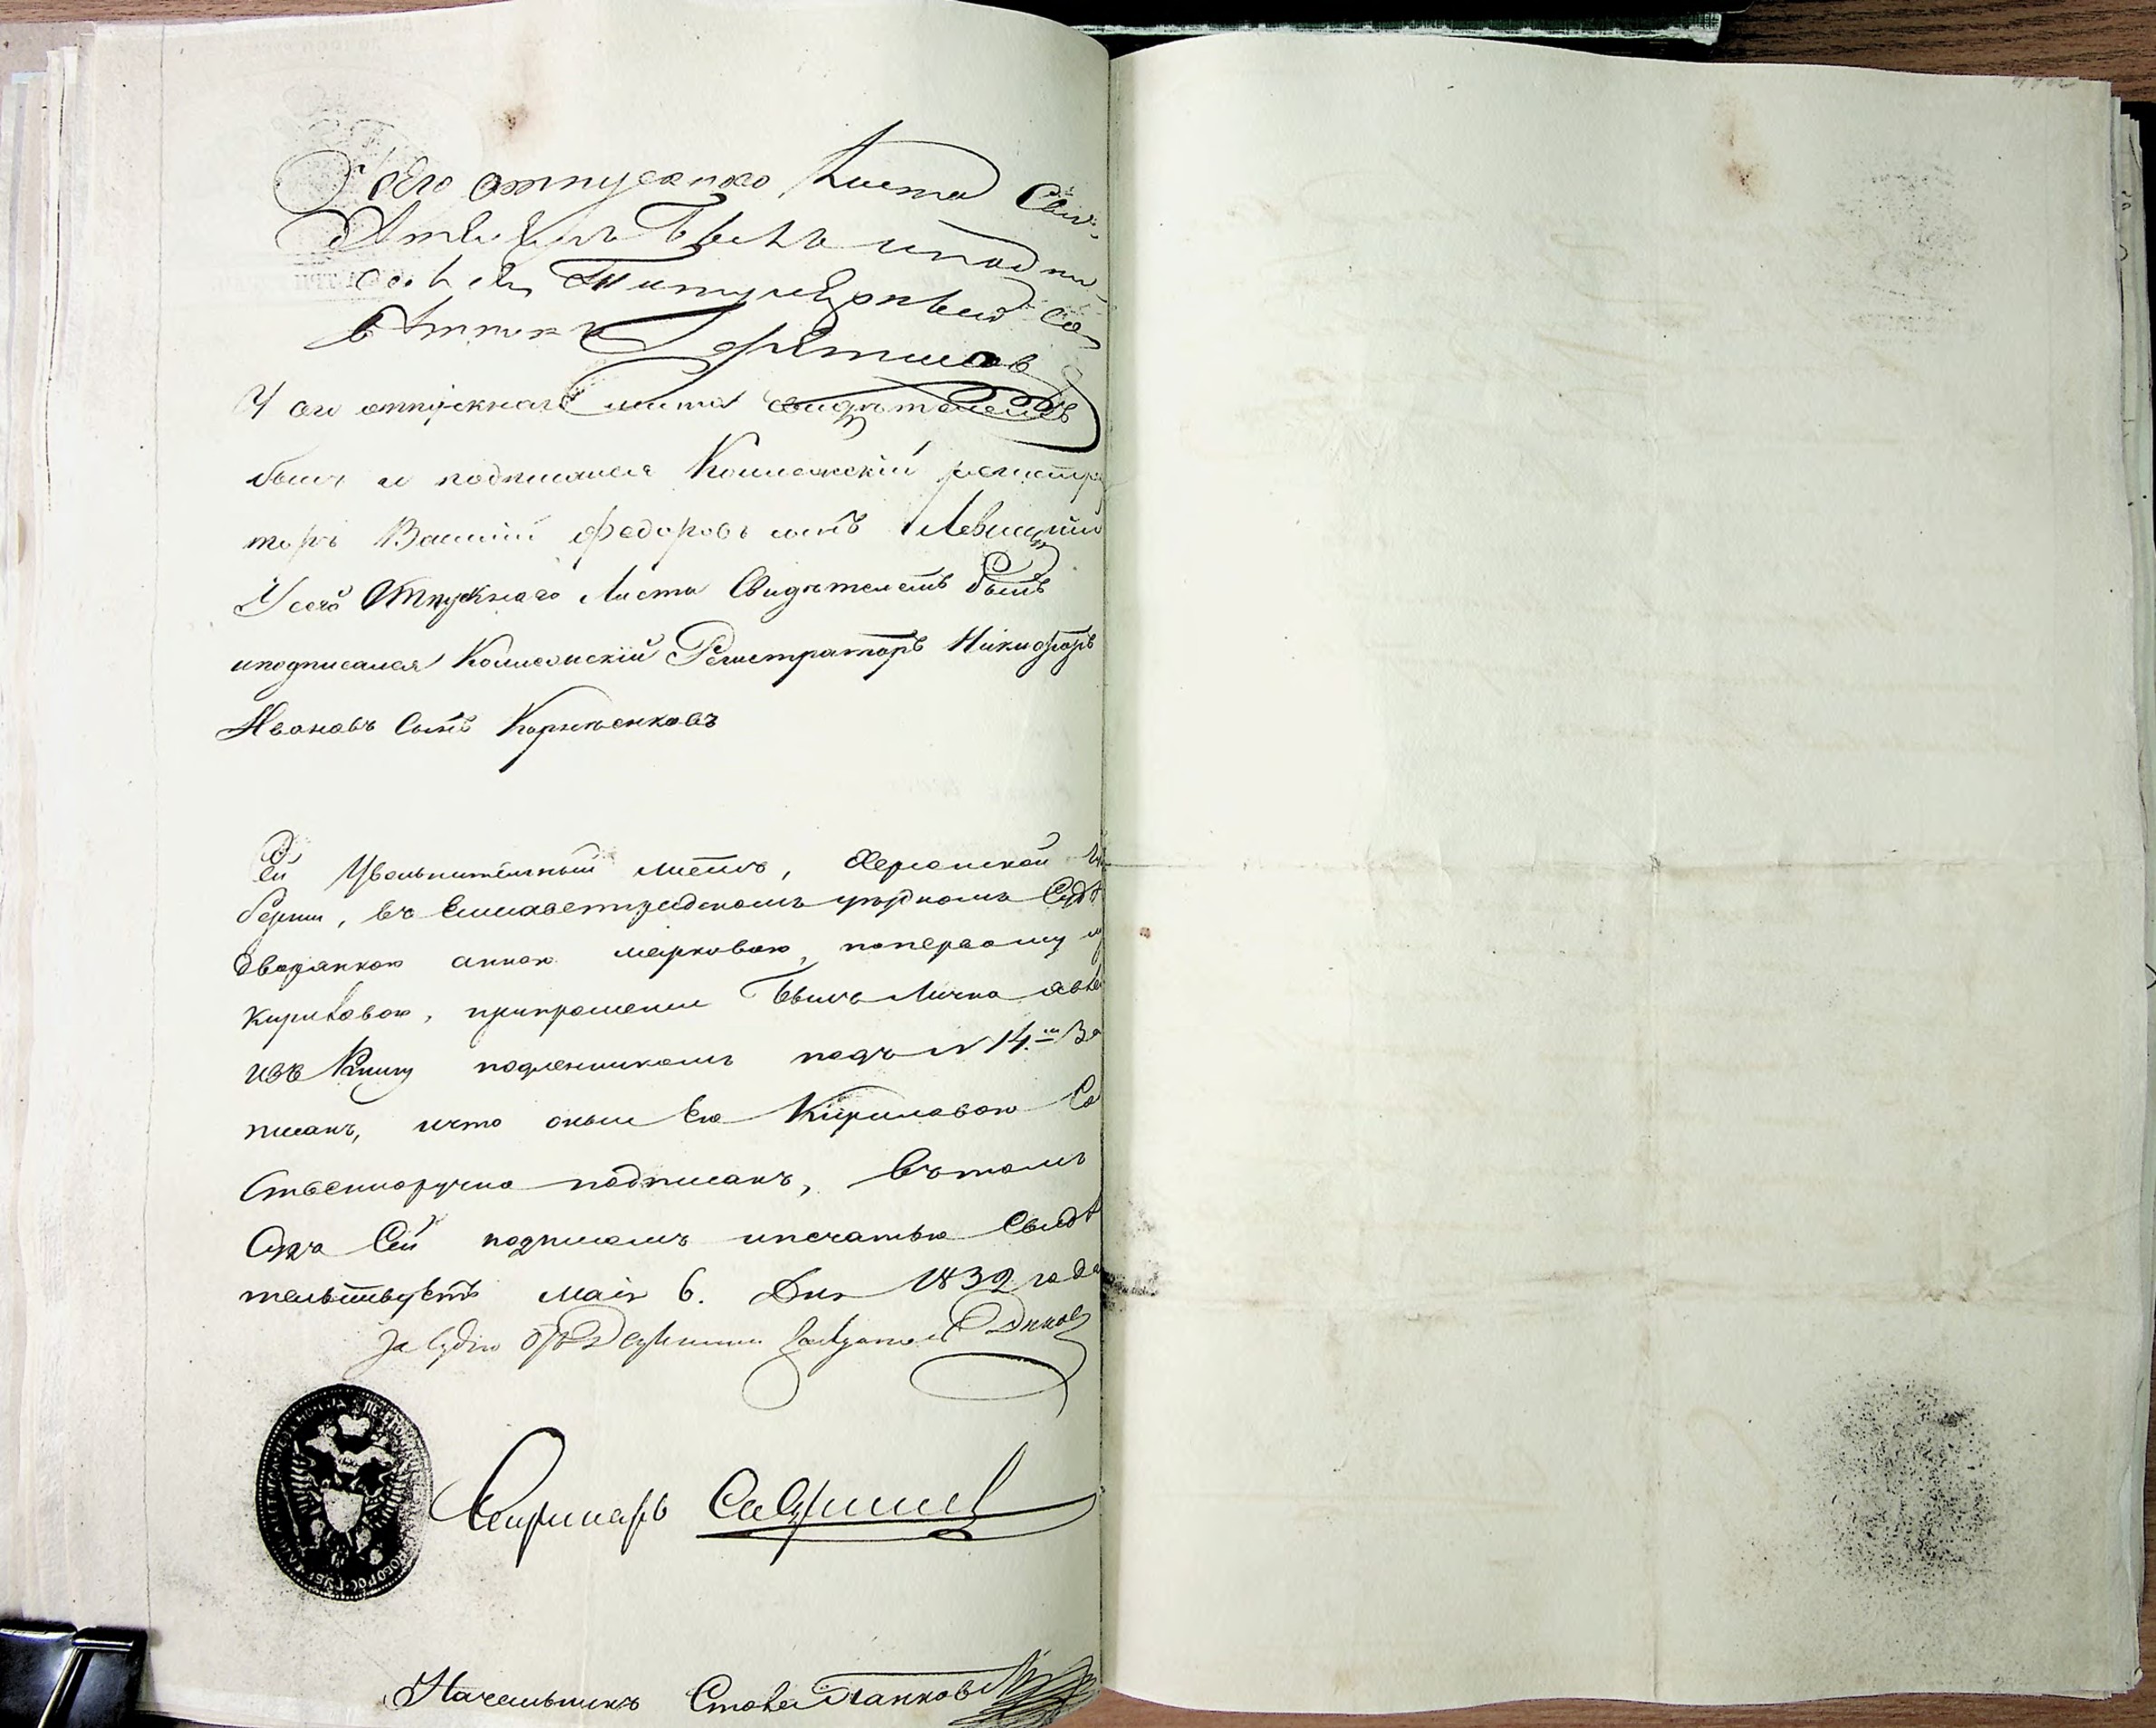 У сего отпускнаго листа Сви-
детелемъ былъ иподпи-
салсея Титулярный Со
ветникъ
У сего отпускнаго листа свидѣтелемъ
былъ и подписался Коллежскій регистра
торъ Василій Федоровъ сынъ Левицкій
У сего Отпускнаго Листа Свидѣтелемъ былъ
иподписался Коллежскій Регистраторъ Никифоръ
Ивановъ Сынъ Корнѣенковъ
Сей Увольнительный листъ, Херсонской гу
берніи, въ Елисаветградскомъ уѣздномъ Судѣ
дворянкою анною марковою, попервому м
Кириловою, припрошеніи былъ Лично явленъ
ивъ Книгу подленникомъ подъ N 14.мъ За
писанъ, ичто оный Ею Кириловою Со
Ственноручно подписанъ, Вътомъ
Судъ Сей подписомъ ипечатью Свидѣ
тельствуетъ маія 6. Дня 1832 года
За Судью
Секретарь
Начальникъ Стола Панковъ